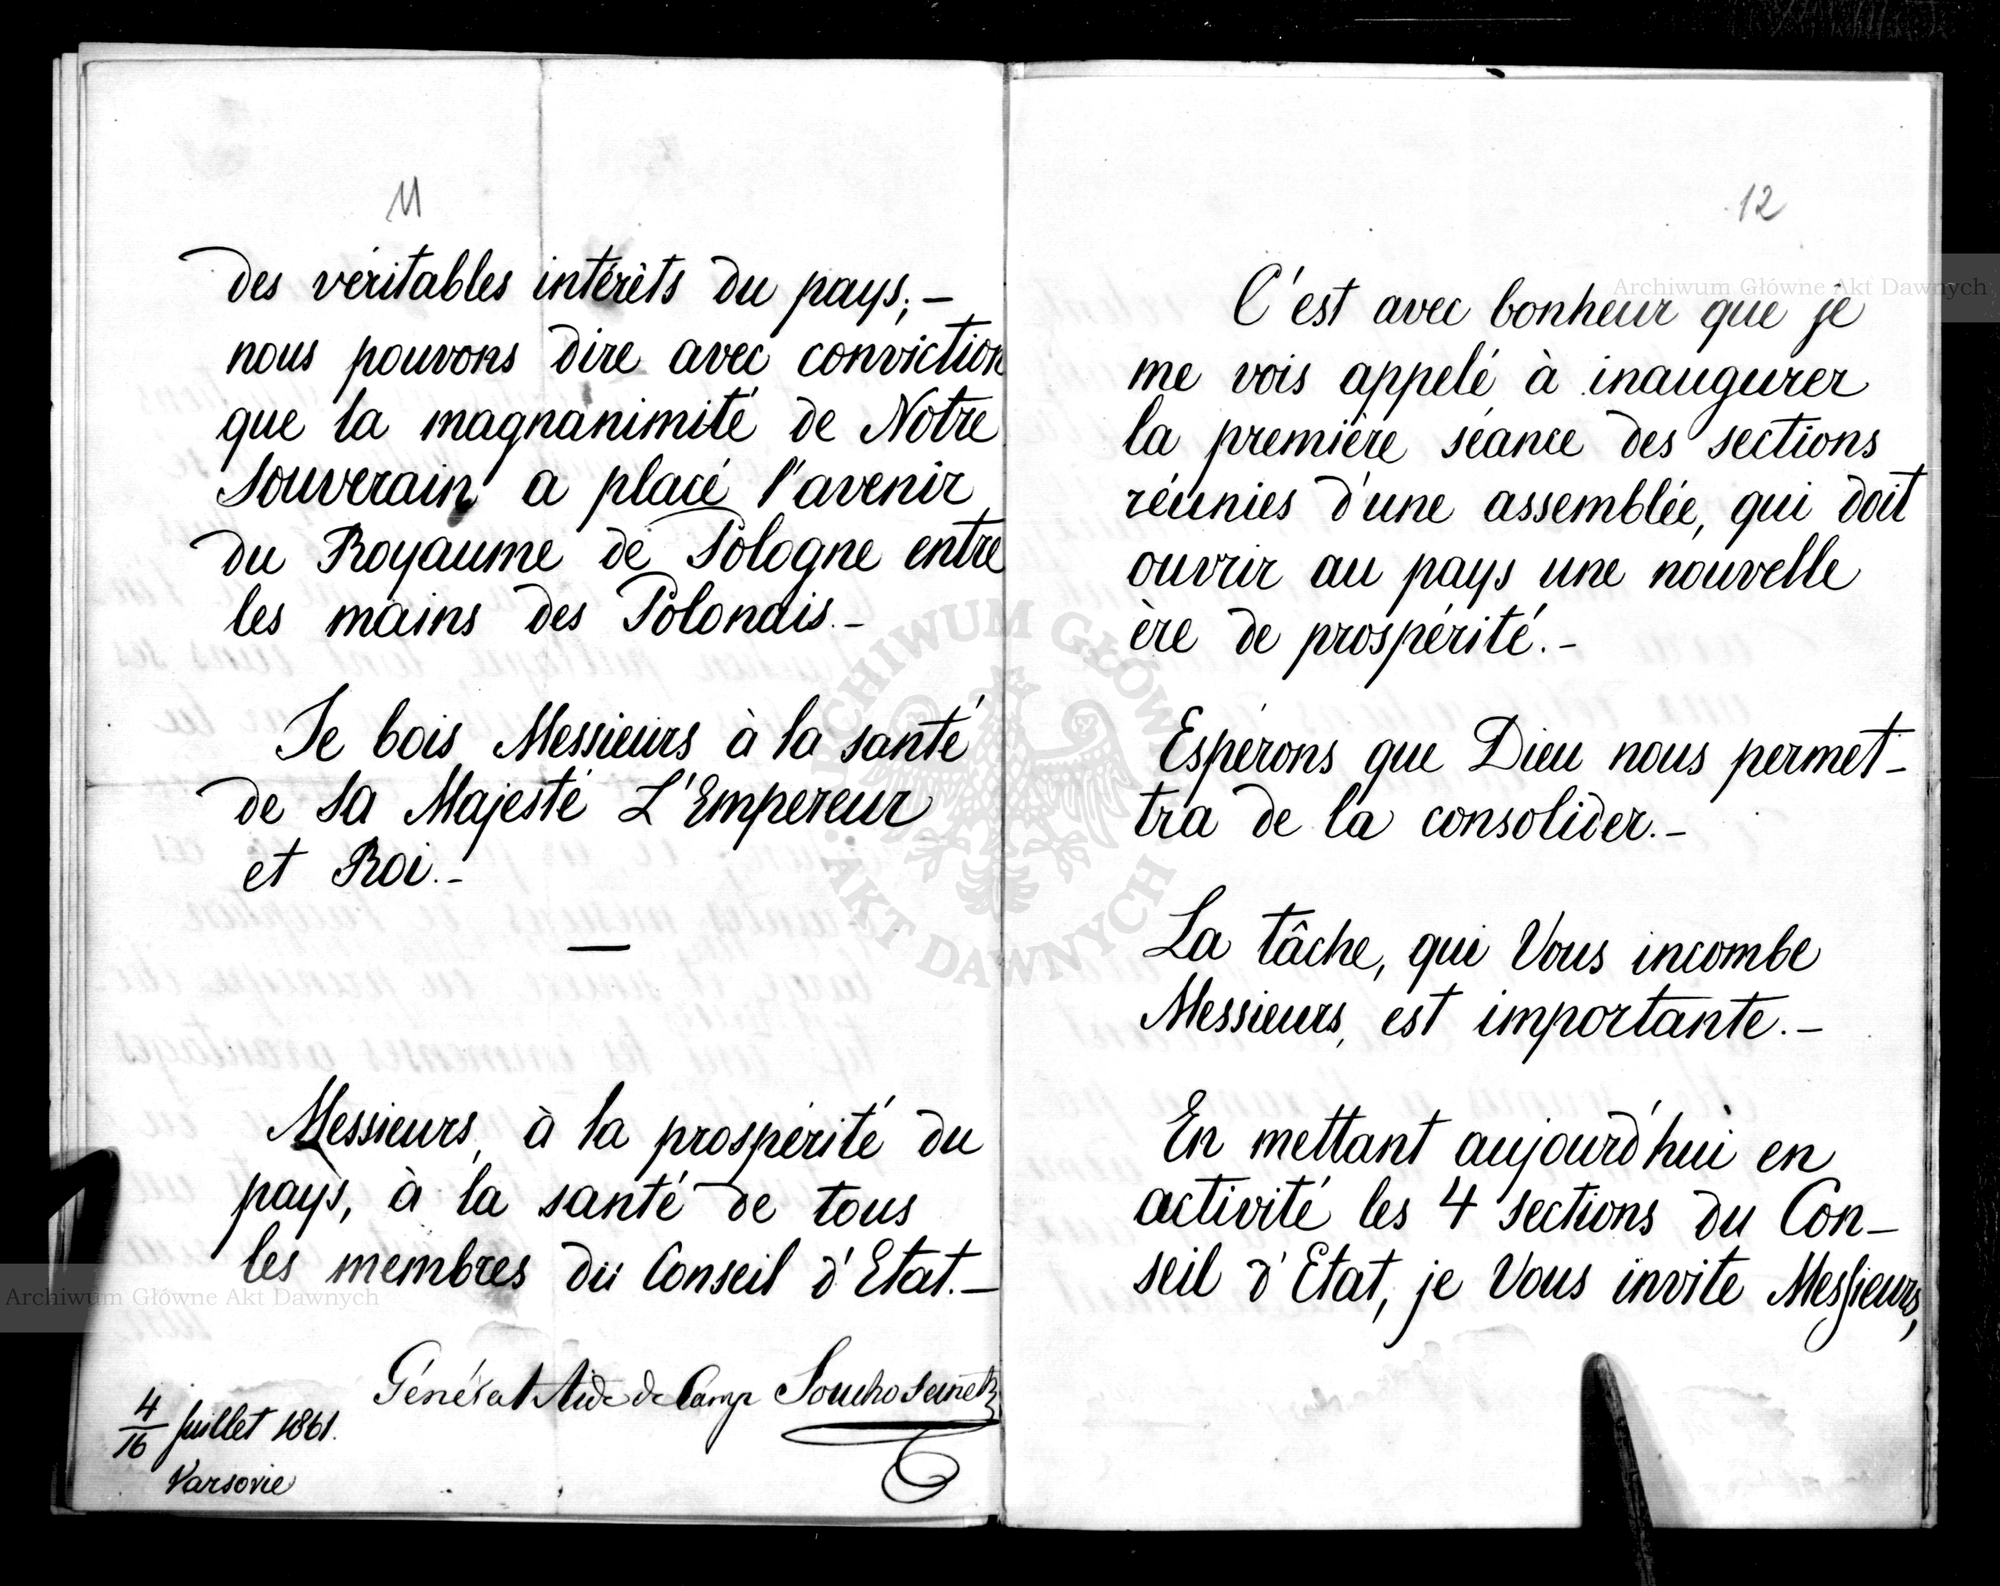 11
des véritables intérêts du pays; —
nous pouvons dire avec conviction
que la magnanimité de Notre
Souverain a placé l'avenir
du Royaume de Pologne entre
les mains des Polonais. —
Je bois Messieurs à la santé
de Sa Majesté L'Empereur
et Roi. —
—
Messieurs, à la prospérité du
pays, à la santé de tous
les membres du Conseil d'Etat. —
Général Aide de Camp Souchosanet
4/16 Juillet 1861.
Varsovie
12
C'est avec bonheur que je
me vois appelé à inaugurer
la première séance des sections
réunies d'une assemblée, qui doit
ouvrir au pays une nouvelle
ère de prospérité. —
Espérons que Dieu nous permet-
tra de la consolider. —
La tâche, qui Vous incombe
Messieurs, est importante. —
En mettant aujourd'hui en
activité les 4 sections du Con-
seil d'Etat, je Vous invite Messieurs,
Archiwum Główne Akt Dawnych
ARCHIWUM GŁÓWNE
AKT DAWNYCH
Archiwum Główne Akt Dawnych